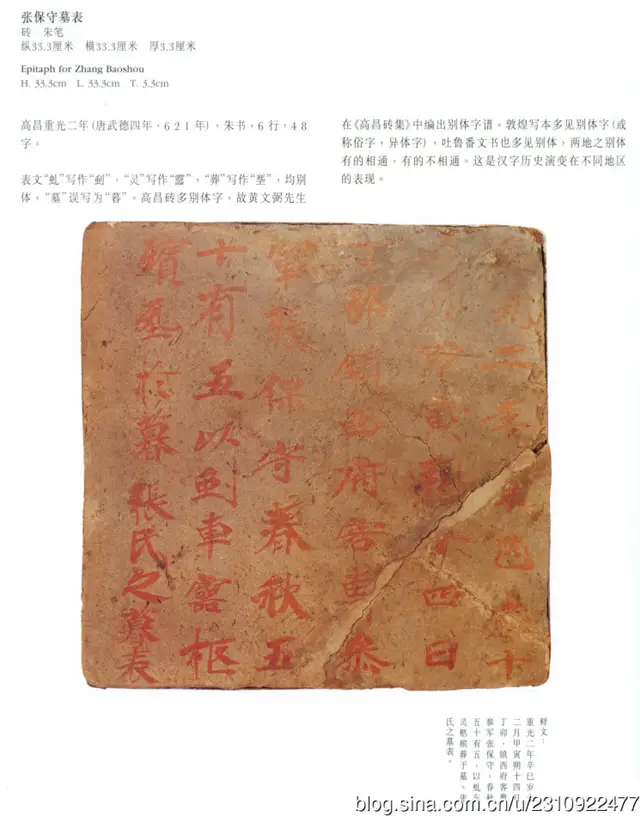 张保守墓表
砖 朱笔
纵33.3厘米 横33.3厘米 厚3.3厘米
Epitaph for Zhang Baoshou
H. 33.3cm L. 33.3cm T. 3.3cm
高昌重光二年(唐武德四年,621年),朱书,6行,48
字。
表文“虬”写作“𠛎”,“灵”写作“霊”,“葬”写作“塟”,均别
体。“墓”误写为“暮”。高昌砖多别体字,故黄文弼先生
在《高昌砖集》中编出别体字谱。敦煌写本多见别体字(或
称俗字,异体字),吐鲁番文书也多见别体,两地之别体
有的相通,有的不相通。这是汉字历史演变在不同地区
的表现。
光二年 巳 十
月甲寅朔十四日
卯鎮西府客曹参
軍張保守春秋五
十有五以𠛎車霊柩
殯塟於暮張氏之暮表
释文:
重光二年辛巳岁
二月甲寅朔十四日
丁卯,镇西府客曹
参军张保守,春秋
五十有五,以虬车
灵柩殡葬于墓。张
氏之墓表。
blog.sina.com.cn/u/2310922477